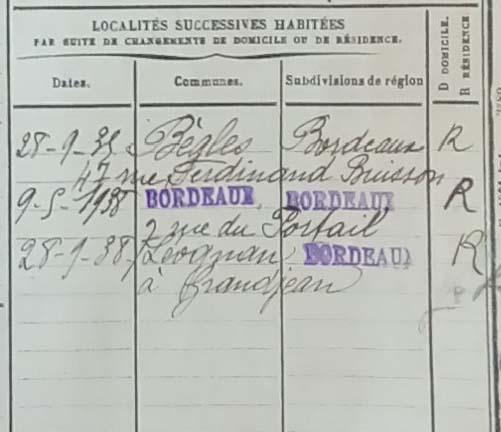 LOCALITÉS SUCCESSIVES HABITÉES
PAR SUITE DE CHANGEMENTS DE DOMICILE OU DE RÉSIDENCE.
D DOMICILE.
R RÉSIDENCE
Dates. Communes. Subdivisions de région
28-9-35 Bègles Bordeaux R
47 rue Ferdinand Buisson
9-5-1938 BORDEAUX. BORDEAUX R
2 rue du Portail
28-9-38 Léognan BORDEAUX R
à Grandjean